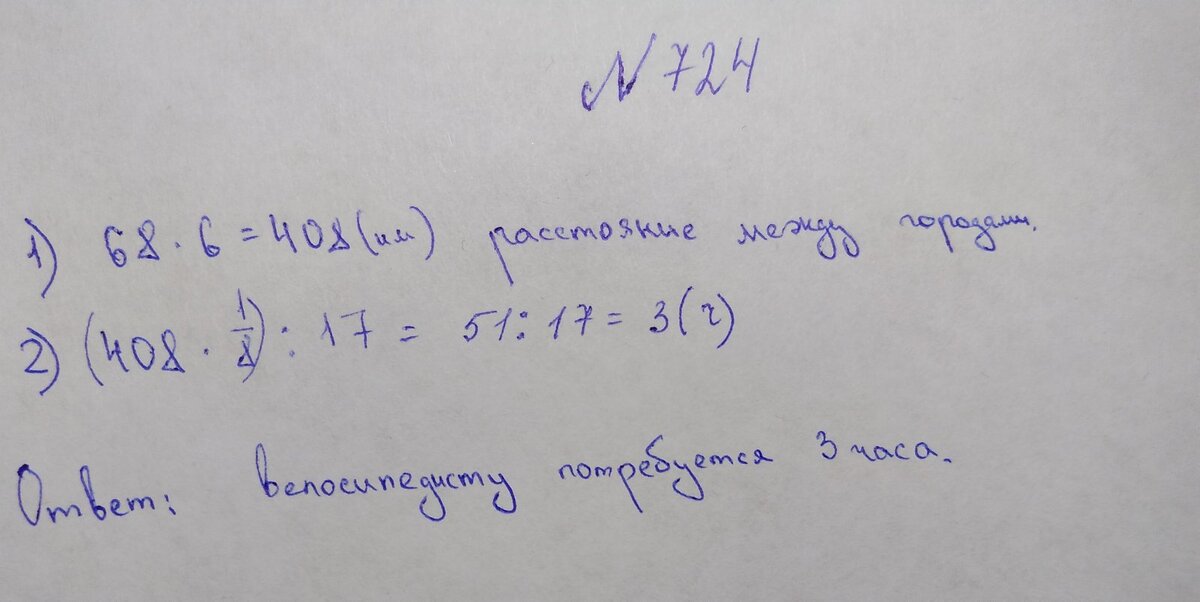 N 724
1) 68 · 6 = 408 (км) расстояние между городами.
2) (408 · 1/8) : 17 = 51 : 17 = 3 (ч)
Ответ: велосипедисту потребуется 3 часа.